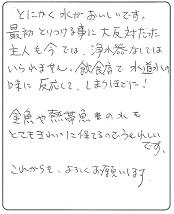 とにかく水がおいしいです。
最初とりつける事に大反対だった
主人も今では、浄水器なしでは
いられません。飲食店で水道水の
味に反応して、しまうほどに!
金魚や熱帯魚の水も
とてもきれいに保てるのでうれしい
です。
これからも、よろしくお願いします。